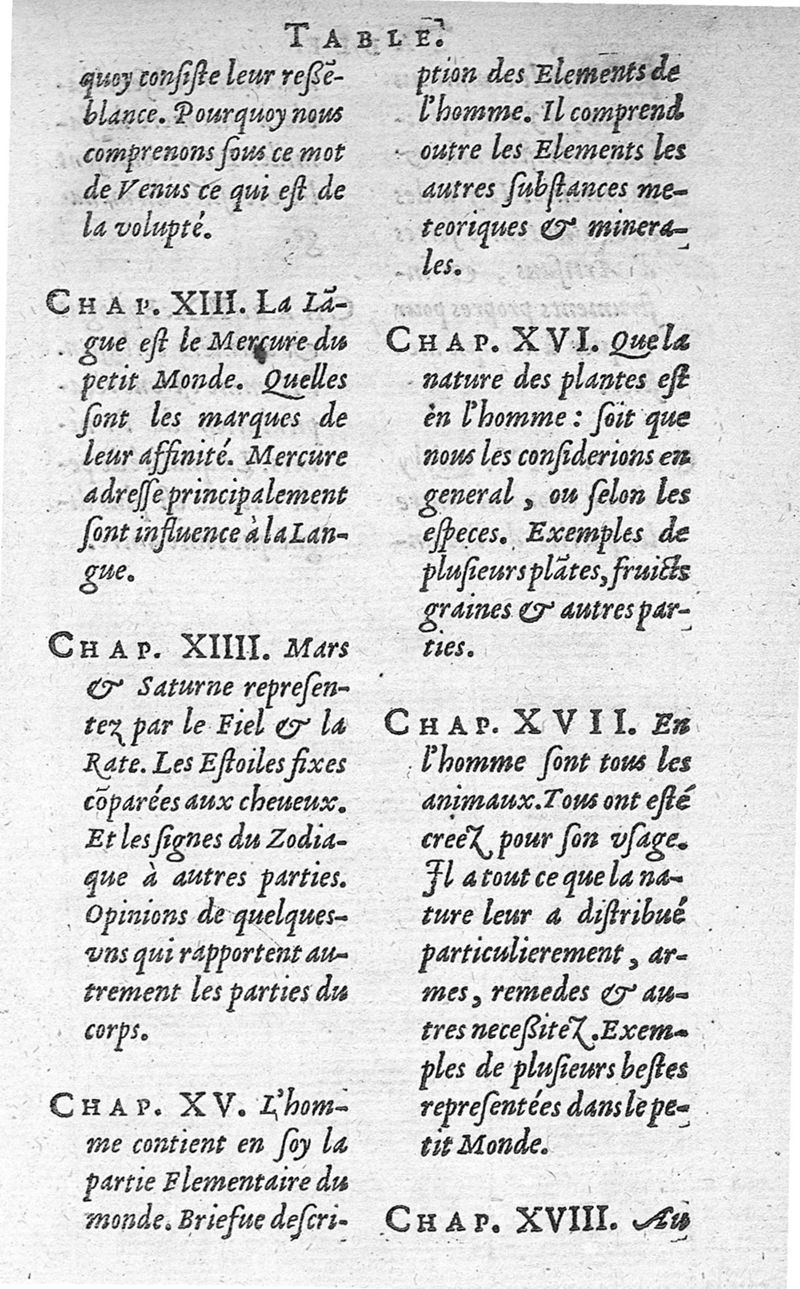 TABLE.
quoy conſiſte leur reßẽ-
blance. Pourquoy nous
comprenons ſous ce mot
de Venus ce qui eſt de
la volupté.
CHAP. XIII. La Lã-
gue eſt le Mercure du
petit Monde. Quelles
ſont les marques de
leur affinité. Mercure
adreſſe principalement
ſont influence à la Lan-
gue.
CHAP. XIIII. Mars
& Saturne repreſen-
tez par le Fiel & la
Rate. Les Eſtoiles fixes
cõparées aux cheueux.
Et les ſignes du Zodia-
que à autres parties.
Opinions de quelques-
vns qui rapportent au-
trement les parties du
corps.
CHAP. XV. L'hom-
me contient en ſoy la
partie Elementaire du
monde. Briefue deſcri-
ption des Elements de
l'homme. Il comprend
outre les Elements les
autres ſubſtances me-
teoriques & minera-
les.
CHAP. XVI. Que la
nature des plantes eſt
èn l'homme : ſoit que
nous les conſiderions en
general, ou ſelon les
eſpeces. Exemples de
pluſieurs plãtes, fruicts
graines & autres par-
ties.
CHAP. XVII. En
l'homme ſont tous les
animaux. Tous ont eſté
creez pour ſon vſage.
Il a tout ce que la na-
ture leur a diſtribué
particulierement, ar-
mes, remedes & au-
tres neceßitez. Exem-
ples de pluſieurs beſtes
repreſentées dans le pe-
tit Monde.
CHAP. XVIII. Au